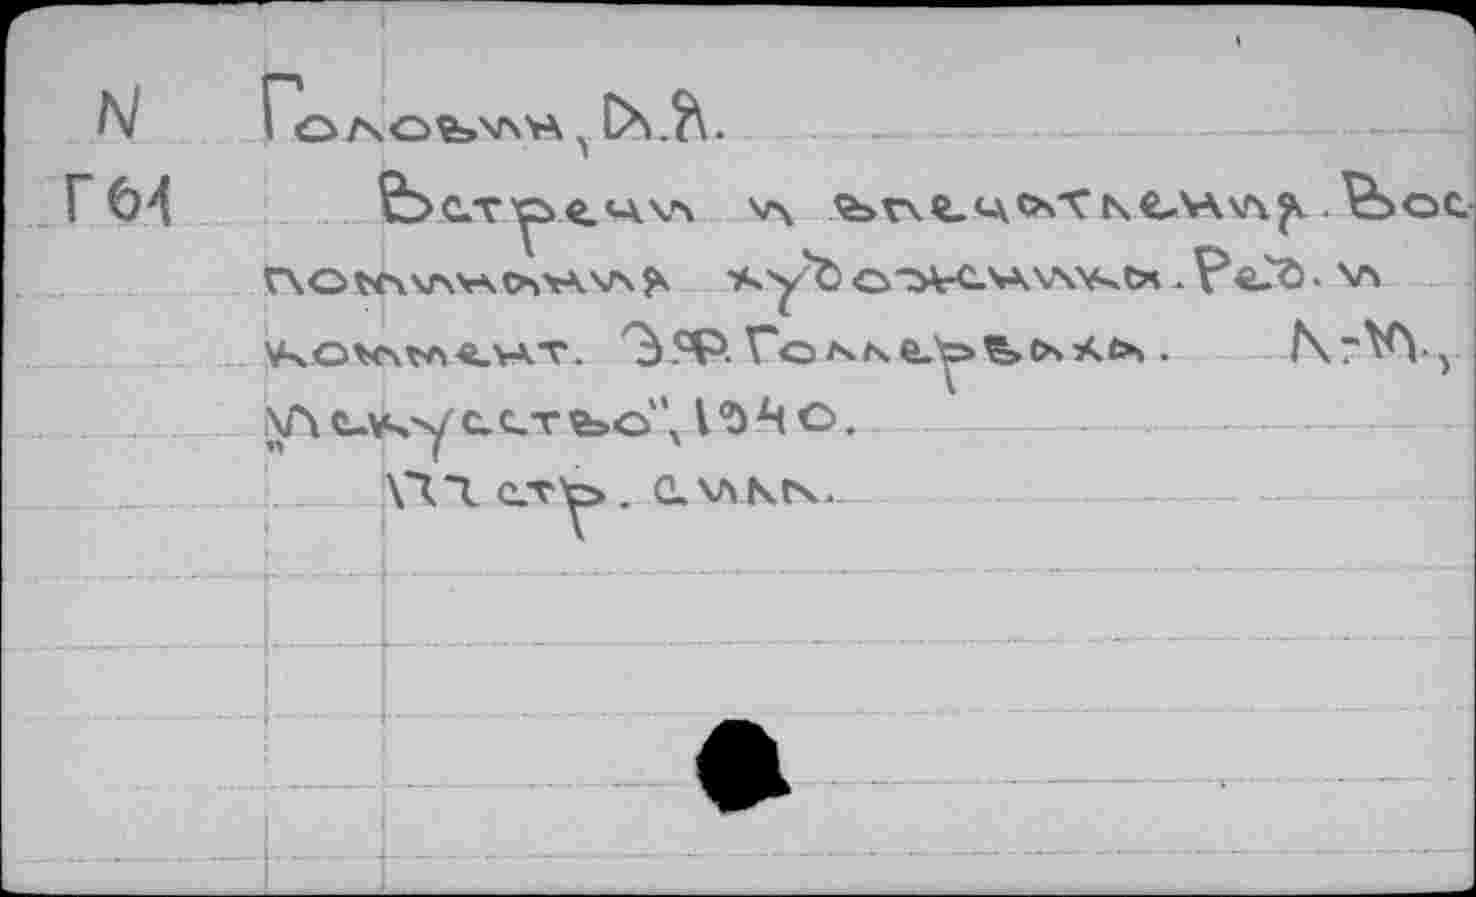 N Головин, А.Я.
Г61 Встречи и впечатления. Вос
поминания художника. Ред. и
коммент. Э.Ф. Голлербаха. Л.-М.,
„Искусство", 1940.
177 стр. с илл.